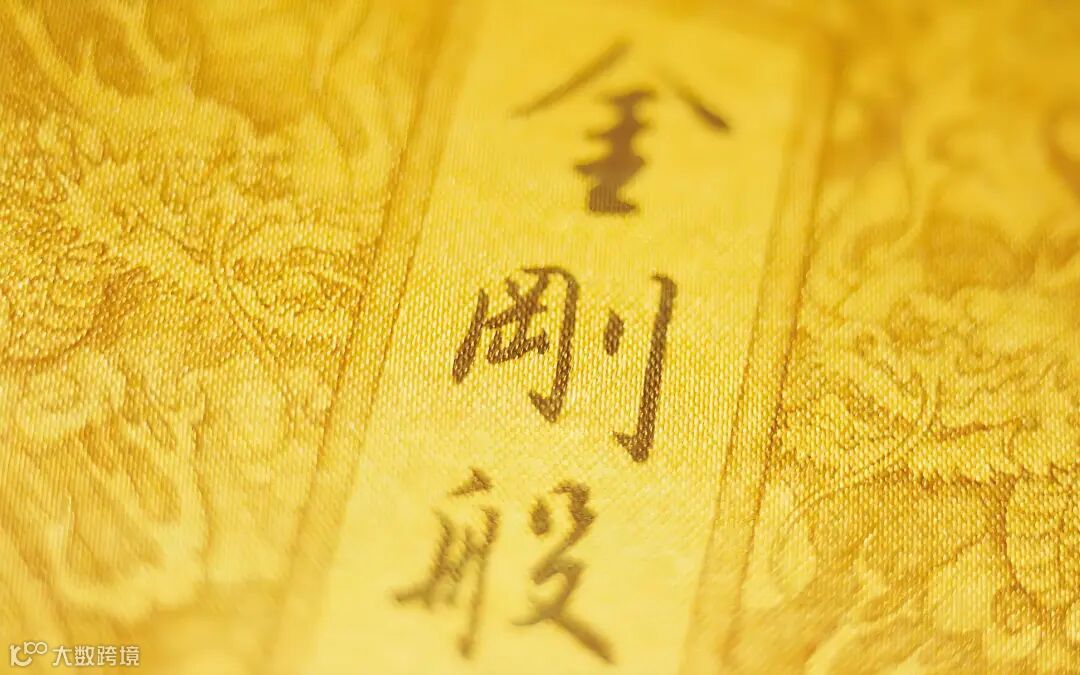 金剛般
大数跨境